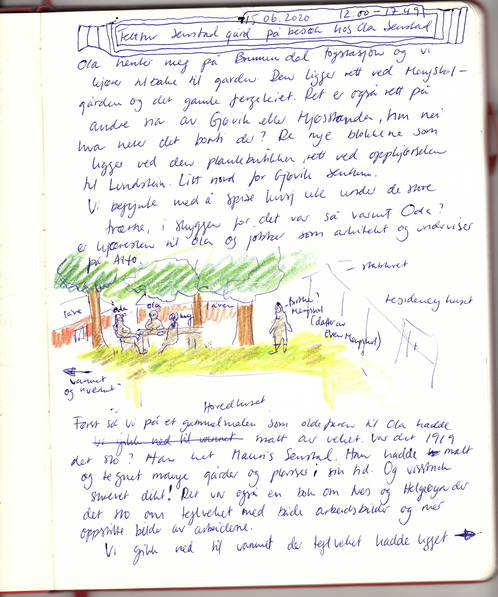 15.06.2020 12.00-17.49
Senstad gård på besøk hos Ola Senstad
Ola henter meg på Brumunddal togstasjon og vi
kjører tilbake til gården. Den ligger rett ved
gården og det gamle fergeleiet. Det er også rett på
andre sia av Gjøvik eller hm nei
hva heter det borti der? De nye blokkene som
ligger ved den plankebutikken, rett ved oppkjørselen
til Litt nord for Gjøvik sentrum.
Vi begynte med å spise lunsj ute under de store
trærne, i skyggen for det var så varmt Oda?
er kjæresten til Ola og jobber som arkitekt og underviser
på AHO.
stabburet
residency huset
låve
Oda
Ola
meg
låven
?
(datter av
Even )
vannet
og
Hovedhuset
Først så vi på et gammelt maleri som oldefaren til Ola hadde
Vi gikk ned til vannet malt av verket. Var det 1919
det sto? Han het Senstad. Han hadde malt
og tegnet mange gårder og plasser i sin tid. Og visstnok
skrevet dikt! Det var også en bok om Nes og Helgøya der
det sto om teglverket med både arbeidsbilder og mer
oppstilte bilder av arbeiderne.
Vi gikk ned til vannet der teglverket hadde ligget →